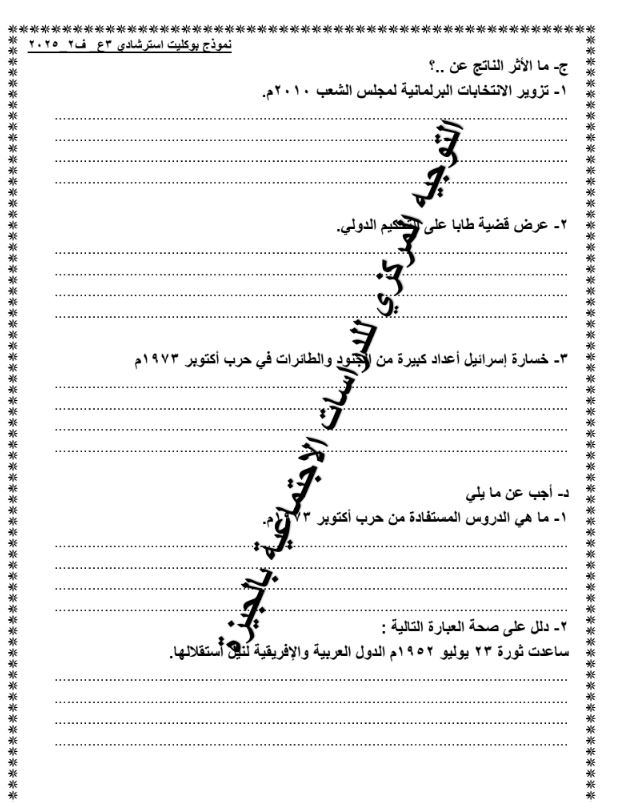 نموذج بوكليت استرشادي ٣ع_ ف٢_ ٢٠٢٥
ج- ما الأثر الناتج عن ..؟
١- تزوير الانتخابات البرلمانية لمجلس الشعب ٢٠١٠م.
٢- عرض قضية طابا على التحكيم الدولي.
٣- خسارة إسرائيل أعداد كبيرة من الجنود والطائرات في حرب أكتوبر ١٩٧٣م
د- أجب عن ما يلي
١- ما هي الدروس المستفادة من حرب أكتوبر ١٩٧٣م.
٢- دلل على صحة العبارة التالية :
ساعدت ثورة ٢٣ يوليو ١٩٥٢م الدول العربية والإفريقية لنيل أستقلالها.
التوجيه المركزي للدراسات الاجتماعية بالجيزة